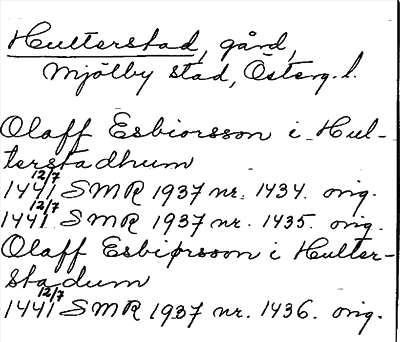 Hulterstad, gård,
Mjölby stad, Österg. l.
Olaff Esbiorsson i Hul-
terstadhum
12/7
1441 SMR 1937 nr. 1434. orig.
12/7
1441 SMR 1937 nr. 1435. orig.
Olaff Esbiorsson i Hulter-
stadum
12/7
1441 SMR 1937 nr. 1436. orig.